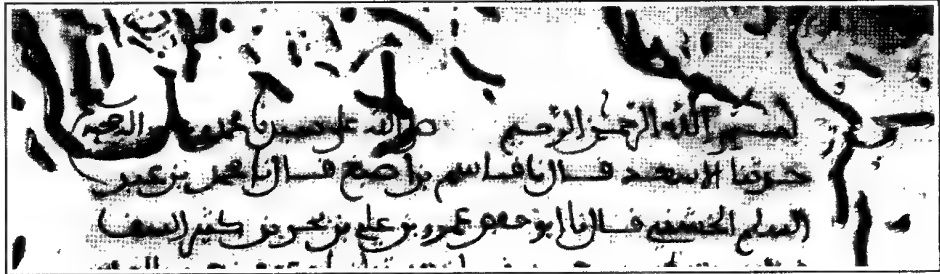 بسم الله الرحمن الرحيم صلى الله على سيدنا محمد وعلى
حدثنا الاسعد قال نا قاسم بن اصبغ قال نا محمد بن عبد
السلم الخشني قال نا ابو حفص عمرو بن علي بن بحر بن كنيز السقا